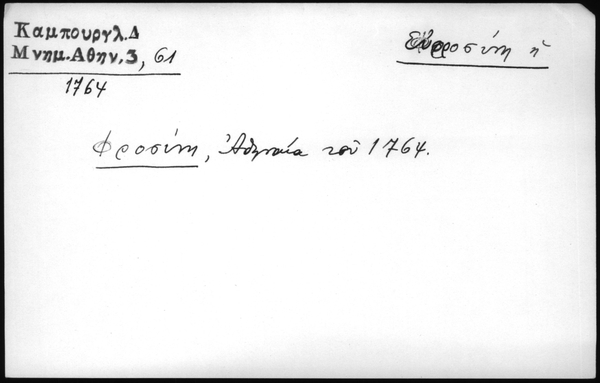 Καμπουργλ.Δ
Μνημ.Αθην.3, 61
1764
Εὐφροσύνη ἡ
Φροσύνη, Ἀθηναία τοῦ 1764.